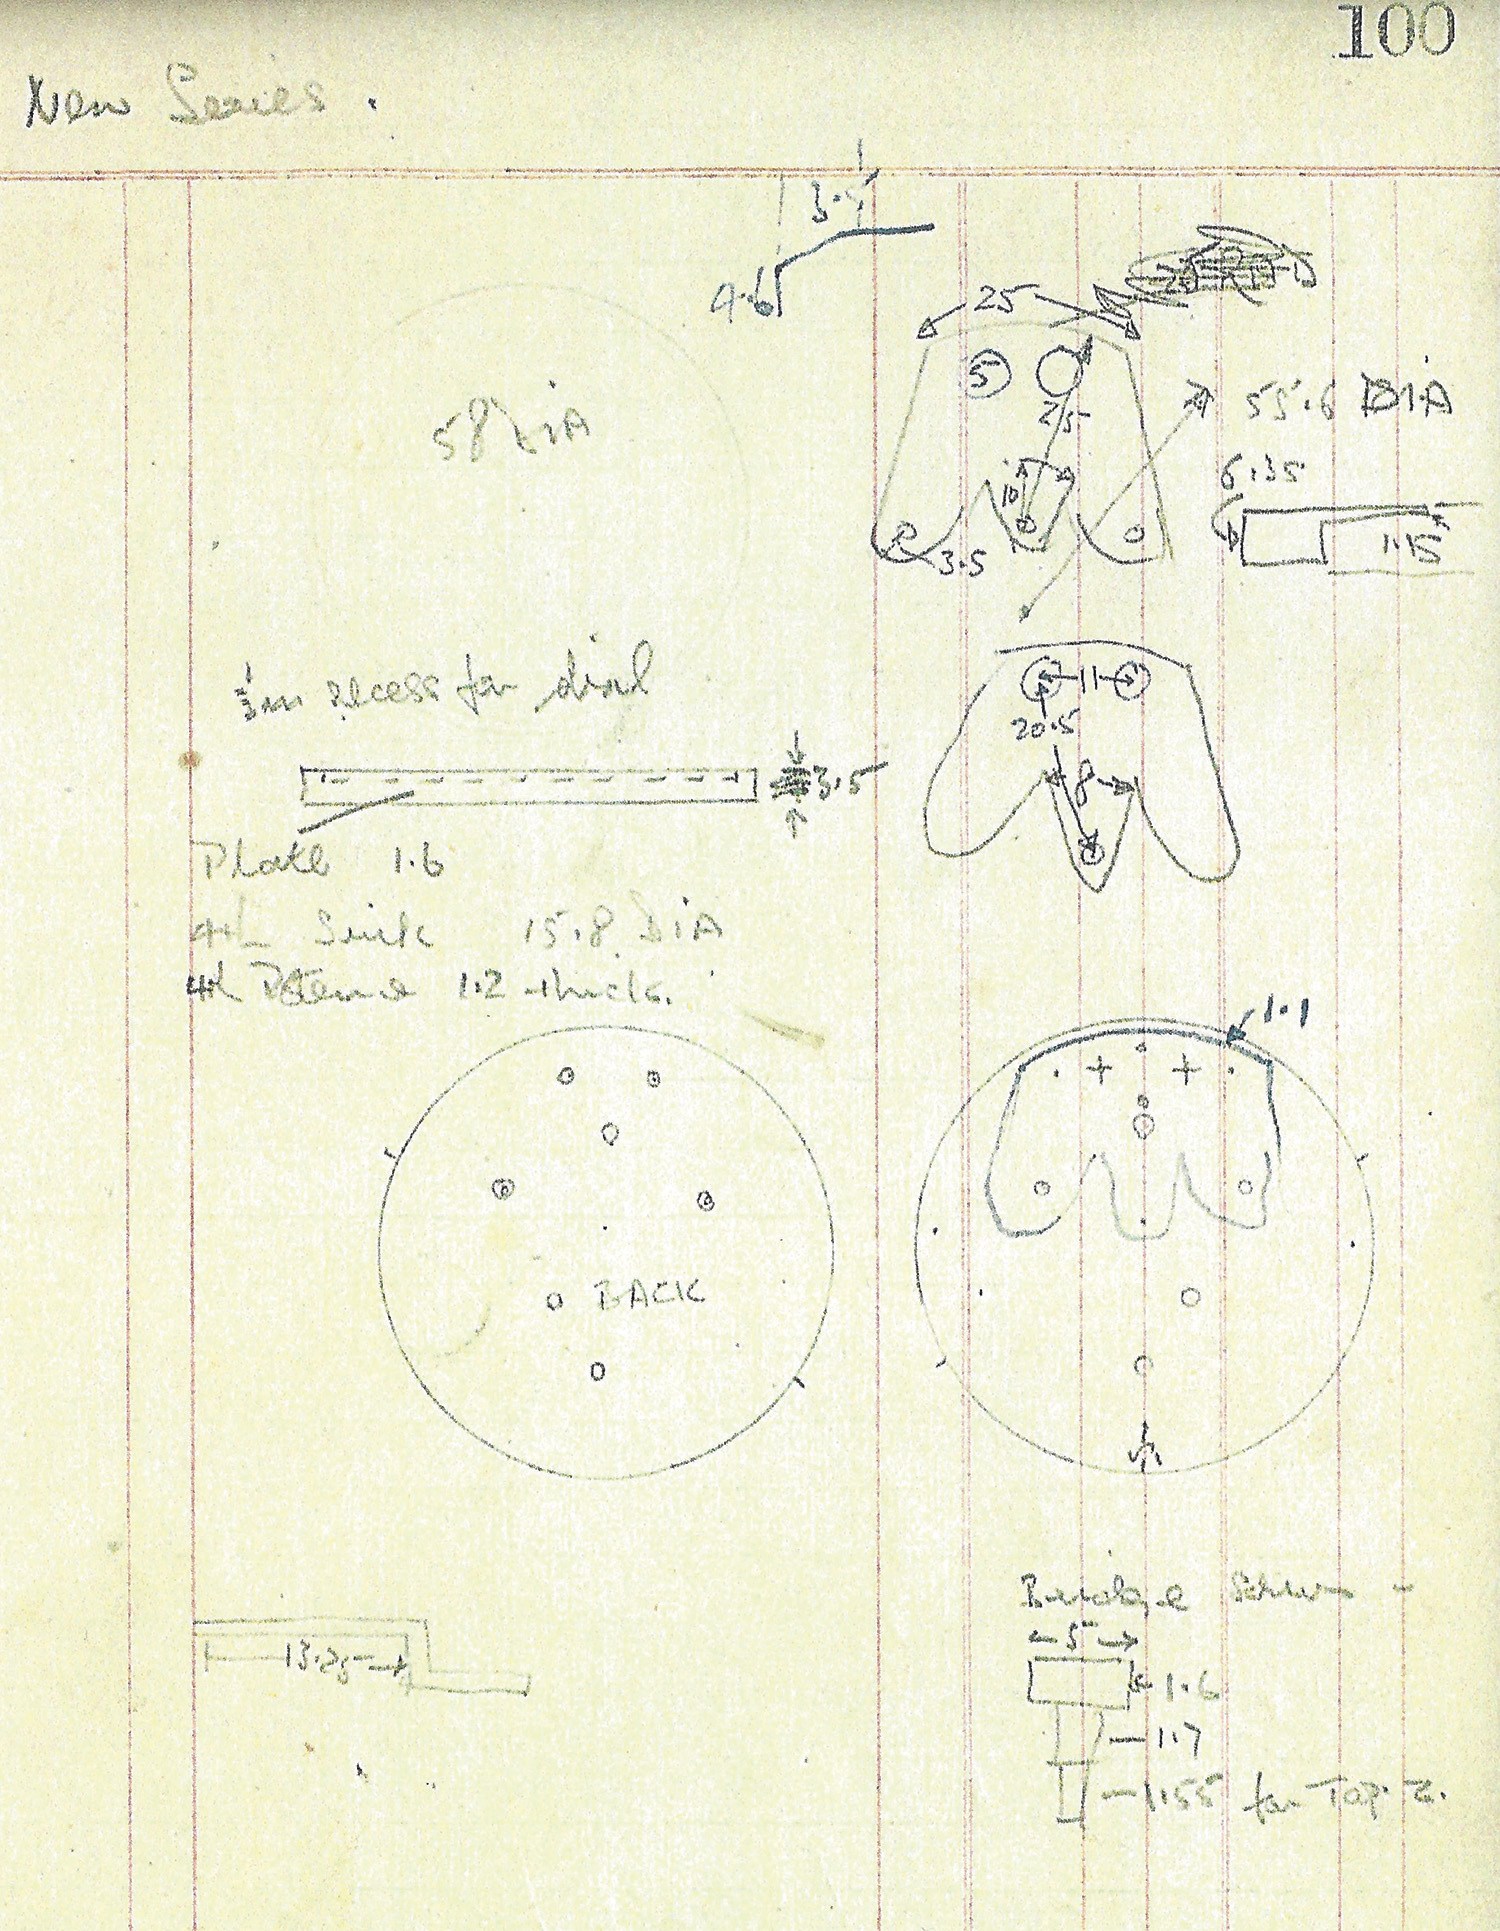 100
New Series.
3.5
4.6
25
5
25
55.6 DIA
58 DIA
10
6.35
1.15
3.5
recess for dial
11
20.5
8
3.5
Plate 1.6
4th Sink 15.8 DIA
4th Potence 1.2 thick.
1.1
BACK
Bridge Screws -
5
13.25
1.6
1.7
1.55 for Tap 2.